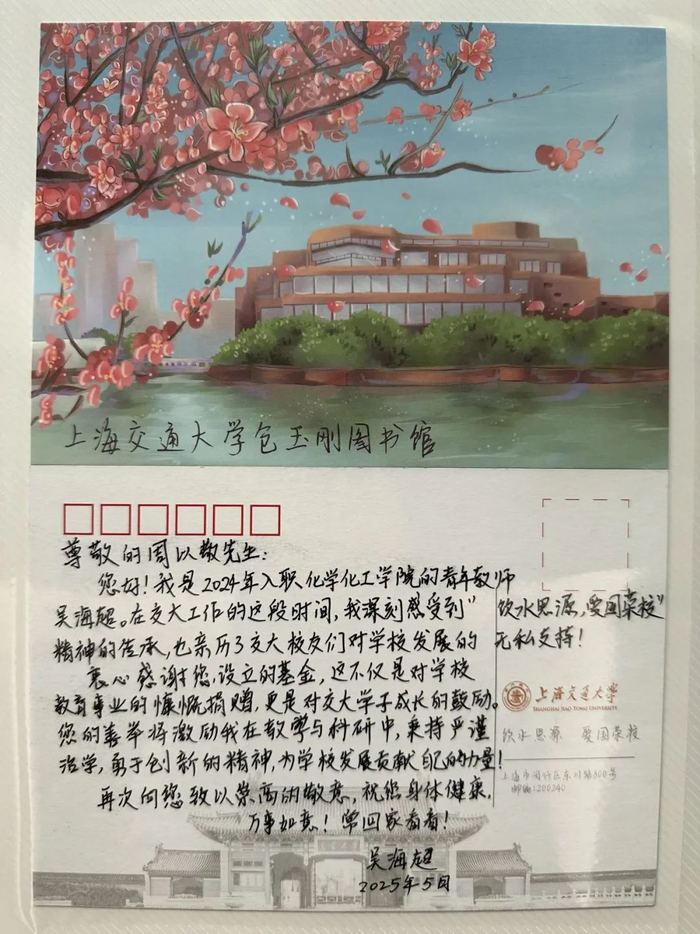 上海交通大学包玉刚图书馆
尊敬的周以敬先生：
您好！我是2024年入职化学化工学院的青年教师
吴海超。在交大工作的这段时间，我深刻感受到“饮水思源，爱国荣校”
精神的传承，也亲历了交大校友们对学校发展的无私支持！
衷心感谢您设立的基金，这不仅是对学校
教育事业的慷慨捐赠，更是对交大学子成长的鼓励。
您的善举将激励我在教学与科研中，秉持严谨
治学，勇于创新的精神，为学校发展贡献自己的力量！
再次向您致以崇高的敬意，祝您身体健康，
万事如意！常回家看看！
吴海超
2025年5日
上海交通大学
SHANGHAI JIAO TONG UNIVERSITY
饮水思源 爱国荣校
上海市闵行区东川路800号
邮编：200240